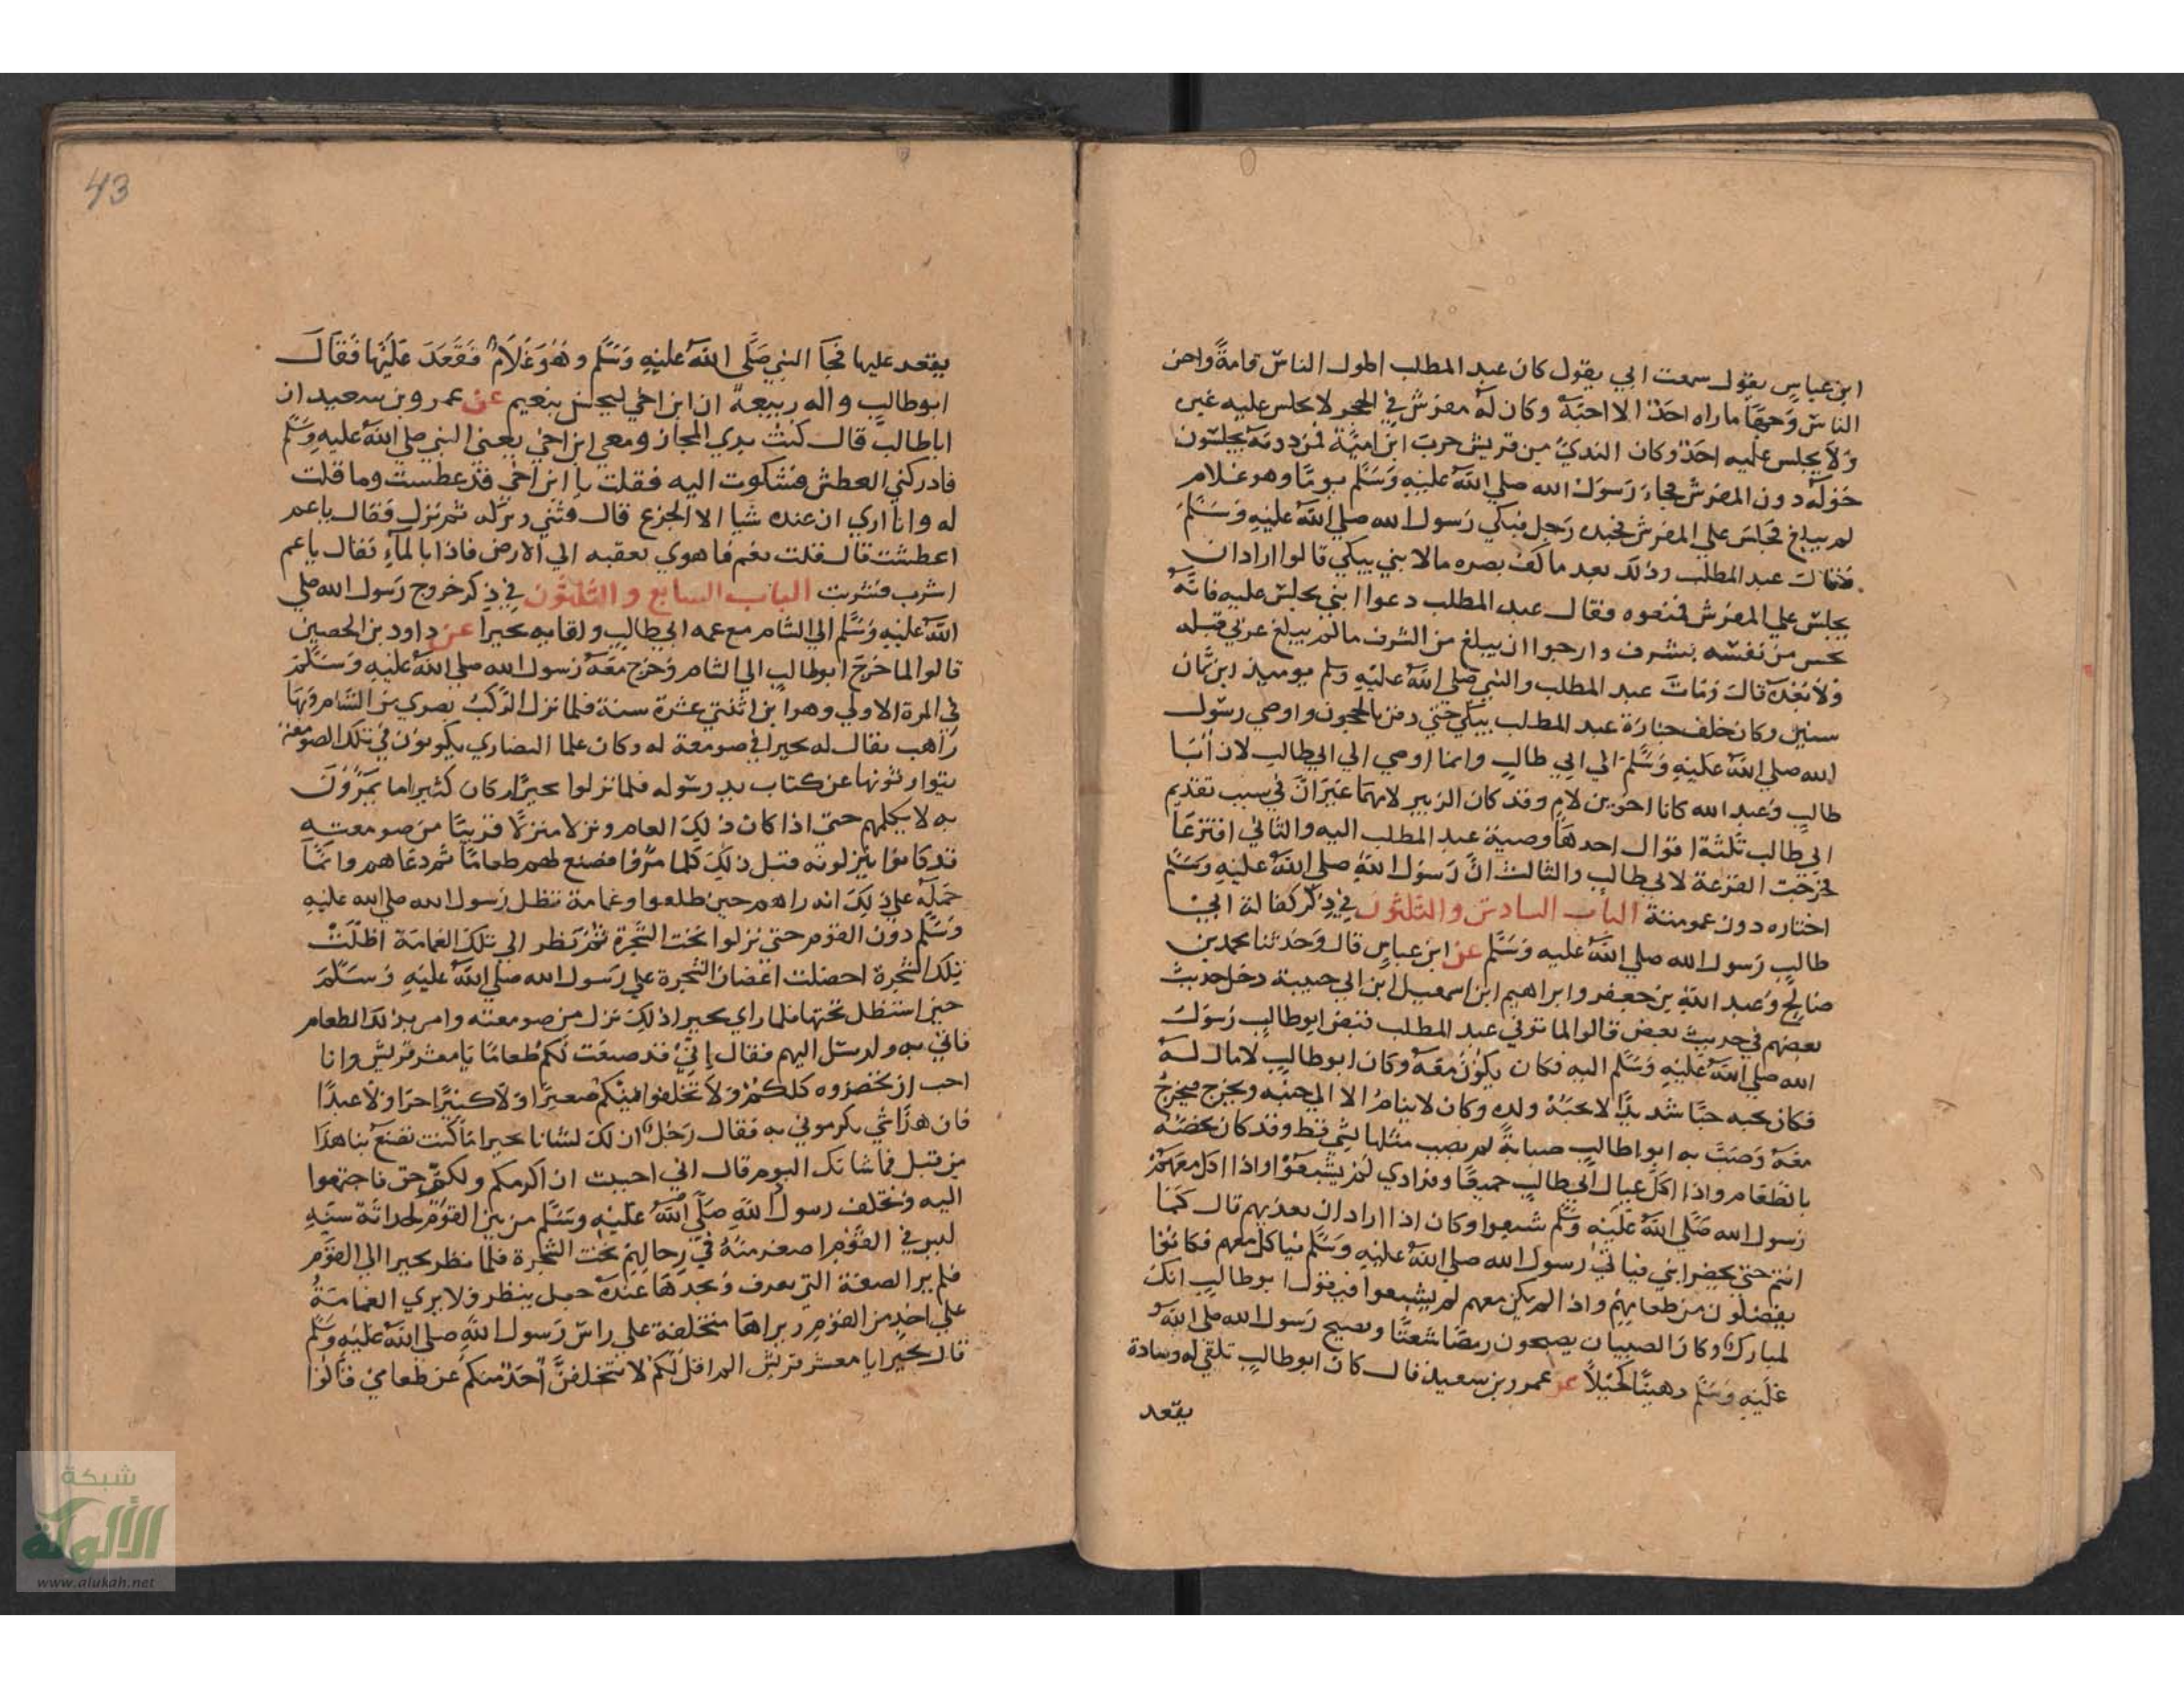 ابن عباس يقول سمعت ابي يقول كان عبد المطلب اطول الناس قامةً واحسن
الناس وجها ما راه احد الا احبه وكان له مفرش في الحجر لا يجلس عليه غيره
ولا يجلس عليه احد وكان الندي من قريش حرب ابن امية فمن دونه يجلسون
حوله دون المفرش فجاء رسول الله صلي الله عليه وسلم يوما وهو غلام
لم يبلغ فجلس علي المفرش فجبذه رجل فبكي رسول الله صلي الله عليه وسلم
فقال عبد المطلب وذلك بعد ما كف بصره ما لابني يبكي قالوا اراد ان
يجلس علي المفرش فمنعوه فقال عبد المطلب دعوا ابني يجلس عليه فانه
يحس من نفسه بشرف وارجوا ان يبلغ من الشرف ما لم يبلغ عربي قبله
ولا بعده قال ومات عبد المطلب والنبي صلي الله عليه وسلم يوميذ ابن ثمان
سنين وكان خلف جنازة عبد المطلب يبكي حتي دفن بالحجون واوصي رسول
الله صلي الله عليه وسلم الي ابي طالب وانما اوصي الي ابي طالب لان ابا
طالب وعبد الله كانا اخوين لام وقد كان الزبير لامهما غير ان في سبب تقديم
ابي طالب ثلثة اقوال احدها وصية عبد المطلب اليه والثاني اقترعا
فخرجت القرعة لابي طالب والثالث ان رسول الله صلي الله عليه وسلم
اختاره دون عمومته الباب السادس والثلثون في ذكر كفالة ابي
طالب رسول الله صلي الله عليه وسلم عن ابن عباس قال وحدثنا محمد بن
صالح وعبد الله بن جعفر وابراهيم ابن اسمعيل ابن ابي حبيبة دخل حديث
بعضهم في حديث بعض قالوا لما توفي عبد المطلب قبض ابو طالب رسول
الله صلي الله عليه وسلم اليه فكان يكون معه وكان ابو طالب لا مال له
فكان يحبه حبا شديدا لا يحبه ولده وكان لا ينام الا الي جنبه ويخرج فيخرج
معه وصب به ابو طالب صبابة لم يصب مثلها لشي قط وقد كان يخصه
بالطعام واذا اكل عيال ابي طالب جميعا وفرادي لم يشبعوا واذا اكل معهم
رسول الله صلي الله عليه وسلم شبعوا وكان اذا اراد ان يغديهم قال كما
انتم حتي يحضر ابني فياتي رسول الله صلي الله عليه وسلم فياكل معهم فكانوا
يفضلون من طعامهم واذا لم يكن معهم لم يشبعوا فيقول ابو طالب انك
لمبارك وكان الصبيان يصبحون رمصا شعثا ويصبح رسول الله صلي الله
عليه وسلم دهينا كحيلا عن عمرو بن سعيد قال كان ابو طالب تلقي له وسادة
يقعد
43
يقعد عليها فجا النبي صلي الله عليه وسلم وهو غلام فقعد عليها فقال
ابو طالب واله ربيعة ان ابن اخي ليحس بنعيم عن عمرو بن سعيد ان
ابا طالب قال كنت بذي المجاز ومعي ابن اخي يعني النبي صلي الله عليه وسلم
فادركني العطش فشكوت اليه فقلت يا ابن اخي قد عطست وما قلت
له وانا اري ان عنده شيا الا الجزع قال فثني وركه ثم نزل فقال يا عم
اعطشت قال فقلت نعم فاهوي بعقبه الي الارض فاذا بالماء فقال يا عم
اشرب فشربت الباب السابع والثلثون في ذكر خروج رسول الله صلي
الله عليه وسلم الي الشام مع عمه ابي طالب ولقايه بحيرا عن داود بن الحصين
قالوا لما خرج ابو طالب الي الشام وخرج معه رسول الله صلي الله عليه وسلم
في المرة الاولي وهو ابن اثنتي عشرة سنة فلما نزل الركب بصري من الشام وبها
راهب يقال له بحيرا في صومعة له وكان علما النصاري يكونون في تلك الصومعة
يتوارثونها عن كتاب يدرسونه فلما نزلوا بحيرا وكان كثيرا ما يمرون
به لا يكلمهم حتي اذا كان ذلك العام ونزلا منزلا قريبا من صومعته
قد كانوا ينزلونه قبل ذلك كلما مروا فصنع لهم طعاما ثم دعاهم وانما
حمله علي ذلك انه راهم حين طلعوا وغمامة تظل رسول الله صلي الله عليه
وسلم دون القوم حتي نزلوا تحت الشجرة ثم نظر الي تلك الغمامة اظلت
تلك الشجرة احضلت اغضان الشجرة علي رسول الله صلي الله عليه وسلم
حين استظل تحتها فلما راي بحيرا ذلك نزل من صومعته وامر بذلك الطعام
فاتي به وارسل اليهم فقال اني قد صنعت لكم طعاما يا معشر قريش وانا
احب ان تحضروه كلكم ولا تخلفوا منكم صغيرا ولا كبيرا حرا ولا عبدا
فان هذا شي تكرموني به فقال رجل ان لك لشانا يا بحيرا ما كنت تصنع بنا هذا
من قبل فما شانك اليوم قال اني احببت ان اكرمكم ولكم حق فاجتمعوا
اليه وتخلف رسول الله صلي الله عليه وسلم من بين القوم لحداثة سنه
ليس في القوم اصغر منه في رحالهم تحت الشجرة فلما نظر بحيرا الي القوم
فلم ير الصفة التي يعرف ويجدها عنده جعل ينظر ولا يري الغمامة
علي احد من القوم ويراها متخلفة علي راس رسول الله صلي الله عليه وسلم
قال بحيرا يا معشر قريش الم اقل لكم لا يتخلفن احد منكم عن طعامي قالوا
شبكة
الألوكة
www.alukah.net